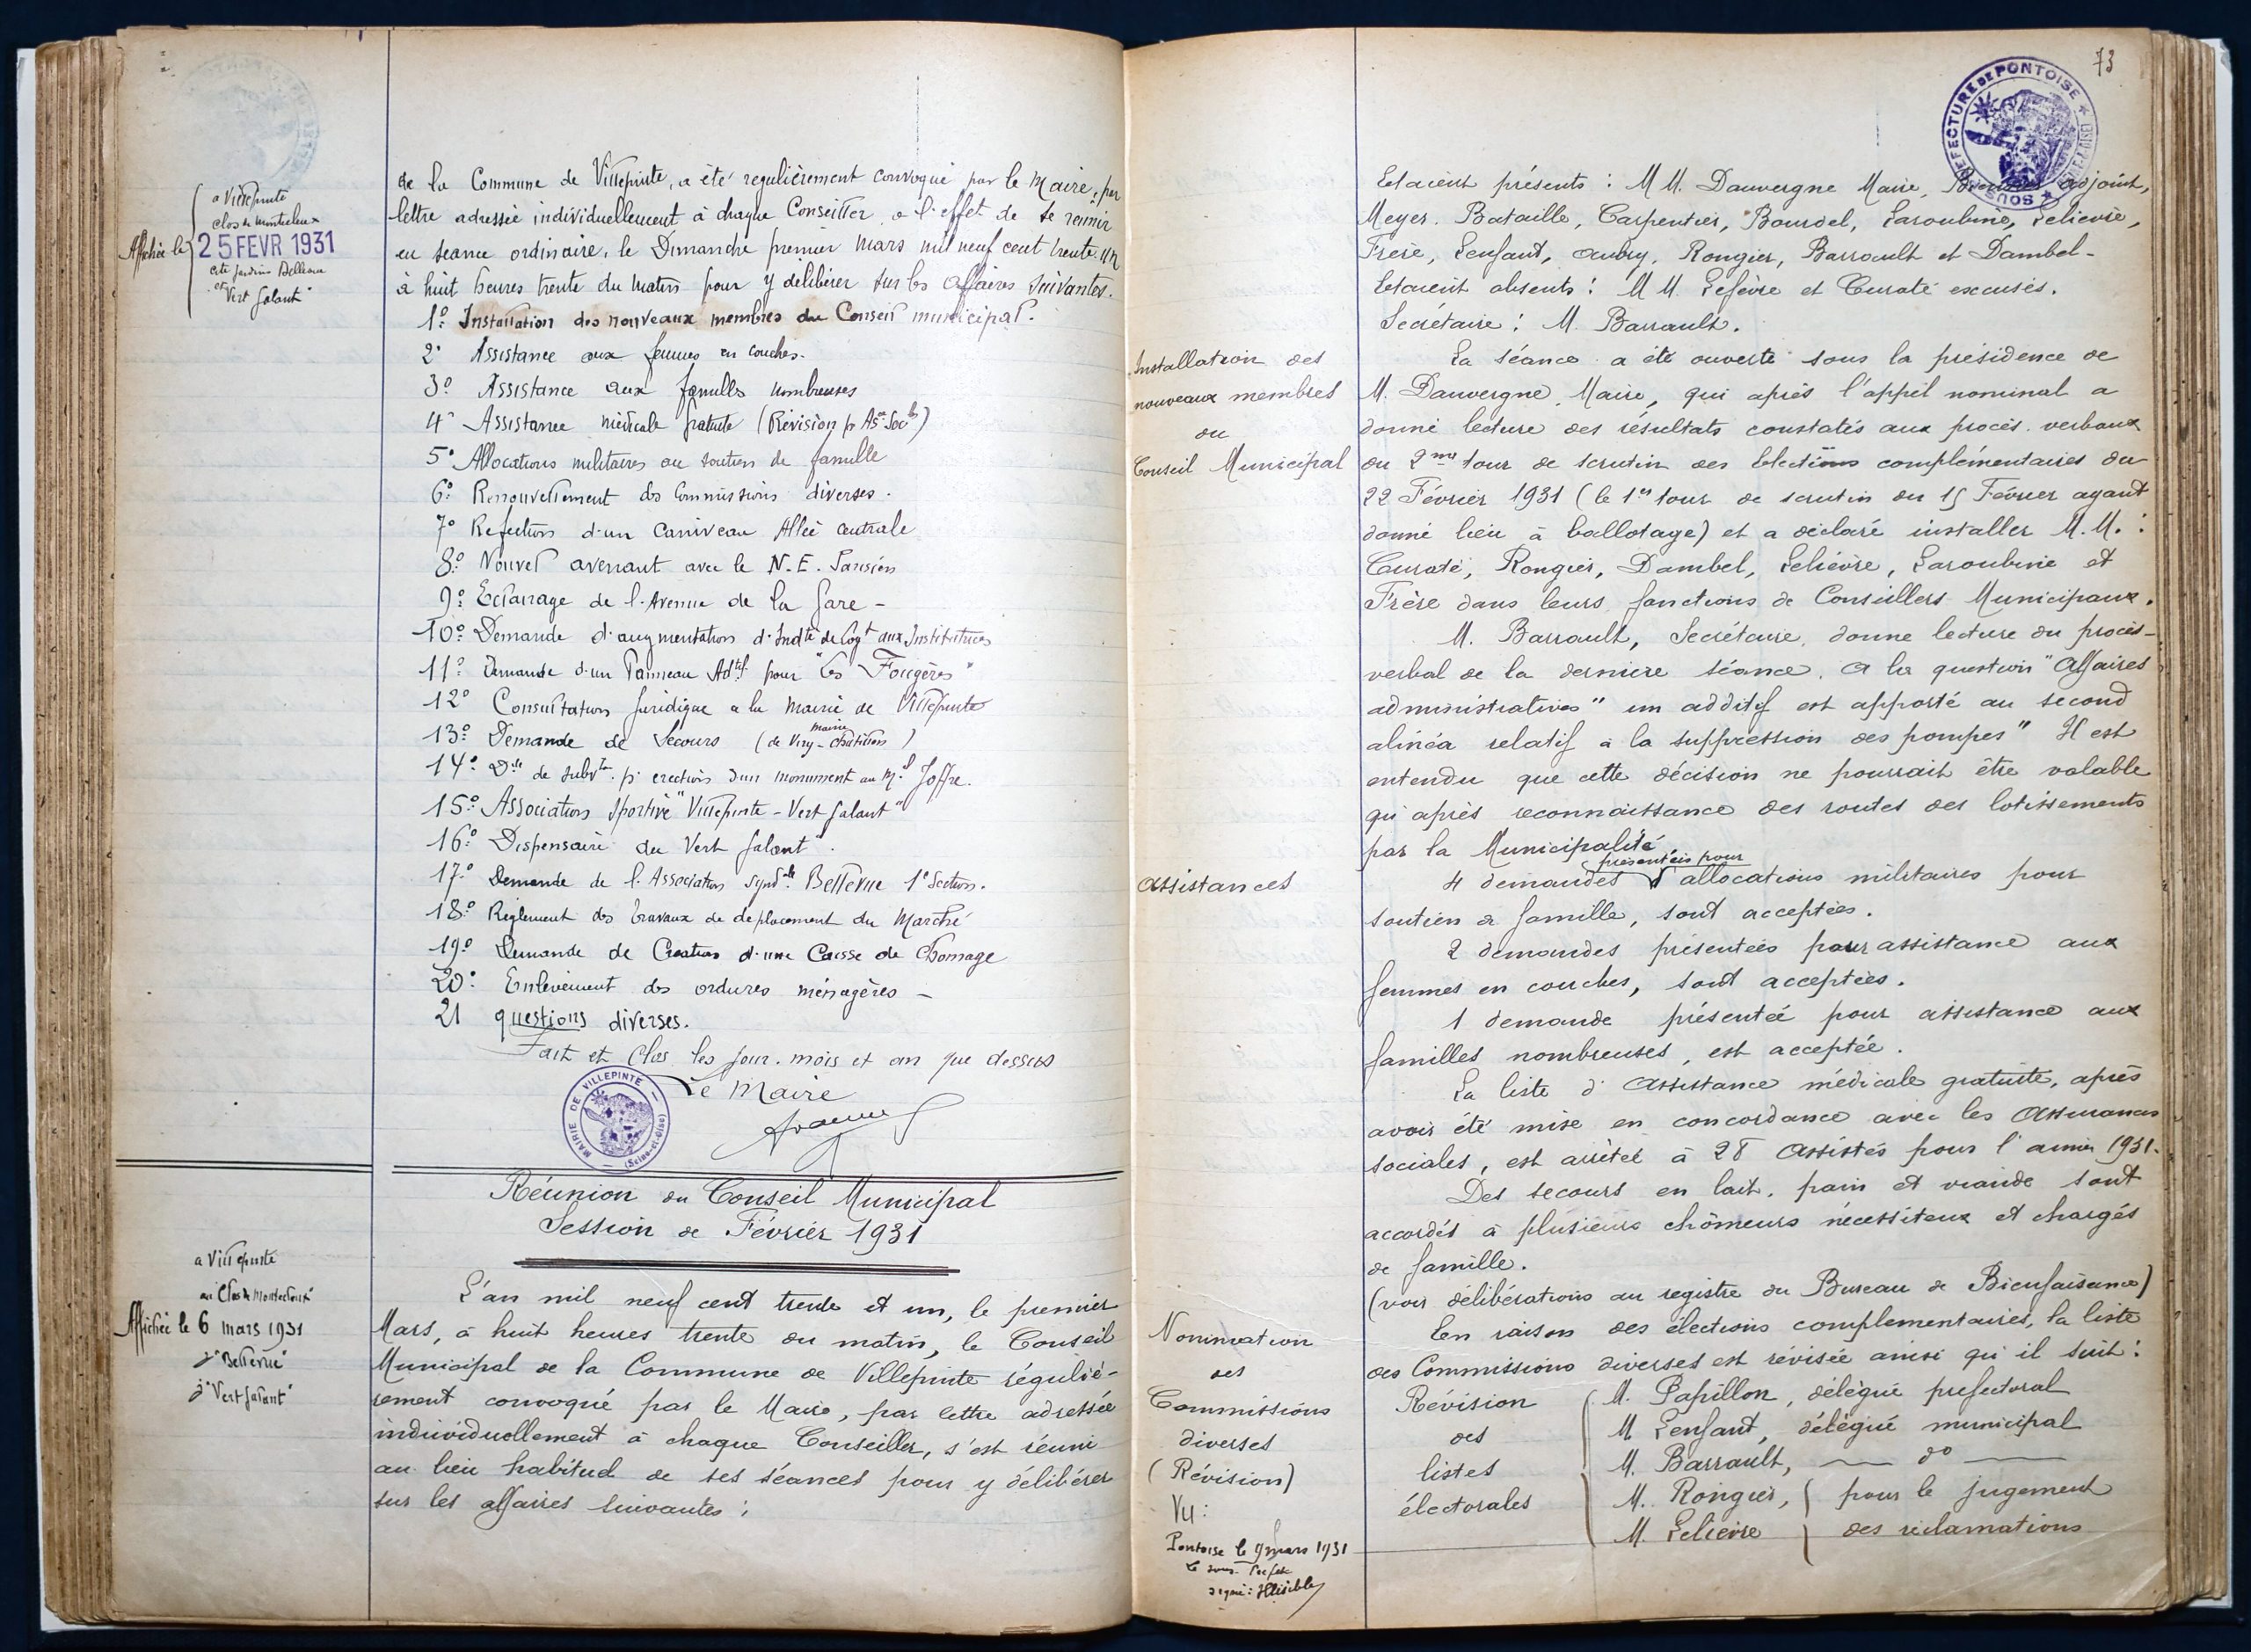 a Villepinte
clos de Montceleux
Affichée le 25 FEVR 1931
cité jardins Bellevue
et
"Vert Galant"
de la Commune de Villepinte, a été regulièrement convoqué par le Maire, par
lettre adressée individuellement à chaque Conseiller a l'effet de se reunir
en seance ordinaire, le Dimanche premier Mars mil neuf cent trente un
à huit heures trente du matin pour y déliberer sur les affaires suivantes.
1º Installation des nouveaux membres du Conseil municipal.
2º Assistance aux femmes en couches.
3º Assistance aux familles nombreuses
4º Assistance médicale gratuite (Révision pr Asces Socles)
5º Allocations militaires au soutien de famille
6º Renouvellement des Commissions diverses.
7º Refection d'un Caniveau Allée centrale
8º Nouvel avenant avec le N.-E. Parisien
9º Eclairage de l'Avenue de la Gare -
10º Demande d'augmentation d'Indté de Logt aux Institutrices
11º Demande d'un Panneau Adtif pour "les Fougères"
12º Consultation Juridique a la Mairie de Villepinte
13º Demande de Secours (de Viry-Chatillon mairie)
14º Dde de subvton pr erection d'un monument au Mal Joffre.
15º Association Sportive "Villepinte - Vert Galant"
16º Dispensaire du Vert Galant".
17º Demande de l'Association Syndale Bellevue 1e Section.
18º Réglement des travaux de deplacement du Marché
19º Demande de Creation d'une Caisse de Chomage
20º Enlèvement des ordures ménagères -
21 questions diverses.
Fait et Clos les jour, mois et an que dessus
Le Maire
MAIRIE DE VILLEPINTE
(Seine-et-Oise)
Réunion du Conseil Municipal
Session de Février 1931
a Villepinte
au Clos de Montceleux"
Affichée le 6 mars 1931
à "Bellevue"
à "Vert galant"
L'an mil neuf cent trente et un, le premier
Mars, à huit heures trente du matin, le Conseil
Municipal de la Commune de Villepinte réguliè-
rement convoqué par le Maire, par lettre adressée
individuellement à chaque Conseiller, s'est réuni
au lieu habituel de ses séances pour y délibérer
sur les affaires suivantes :
73
SOUS-PREFECTURE DE PONTOISE
Etaient présents : M M. Dauvergne Maire, adjoint,
Meyer. Bataille, Carpentier, Bourdel, Laroubine, Lelievre,
Frère, Lenfant, Aubry, Rongier, Barrault et Dambel-
Etaient absents : M M. Lefèvre et Curaté excusés.
Secrétaire : M. Barrault.
Installation des
nouveaux membres
du
Conseil Municipal
La séance a été ouverte sous la présidence de
M. Dauvergne, Maire, qui après l'appel nominal a
donné lecture des résultats constatés aux procès-verbaux
du 2me tour de scrutin des Elections complémentaires du
22 Février 1931 (le 1er tour de scrutin du 15 Février ayant
donné lieu à ballotage) et a déclaré installer M.M. :
Curaté, Rongier, Dambel, Lelièvre, Laroubine et
Frère dans leurs fonctions de Conseillers Municipaux.
M. Barrault, Secrétaire, donne lecture du procès-
verbal de la dernière séance. A la question "Affaires
administratives" un additif est apporté au second
alinéa relatif à la suppression des pompes" Il est
entendu que cette décision ne pourrait être valable
qu'après reconnaissance des routes des lotissements
par la Municipalité
Assistances
4 demandes présentées pour allocations militaires pour
soutien de famille, sont acceptées.
2 demandes présentées pour assistance aux
femmes en couches, sont acceptées.
1 demande présentée pour assistance aux
familles nombreuses, est acceptée.
La liste d'Assistance médicale gratuite, après
avoir été mise en concordance avec les Assurances
sociales, est arrêtée à 28 Assistés pour l'année 1931.
Des secours en lait, pain et viande sont
accordés à plusieurs chômeurs nécessiteux et chargés
de famille.
(voir délibérations au registre du Bureau de Bienfaisance)
Nomination
des
Commissions
diverses
(Révision)
En raison des élections complementaires, la liste
des Commissions diverses est révisée ainsi qu'il suit :
Révision
des
listes
électorales
M. Papillon, délégué prefectoral
M. Lenfant, délégué municipal
M. Barrault, — dº —
M. Rongier, pour le jugement
M. Lelievre des réclamations
Vu :
Pontoise le 9 mars 1931
Le Sous-Prefet
signé : Illisible